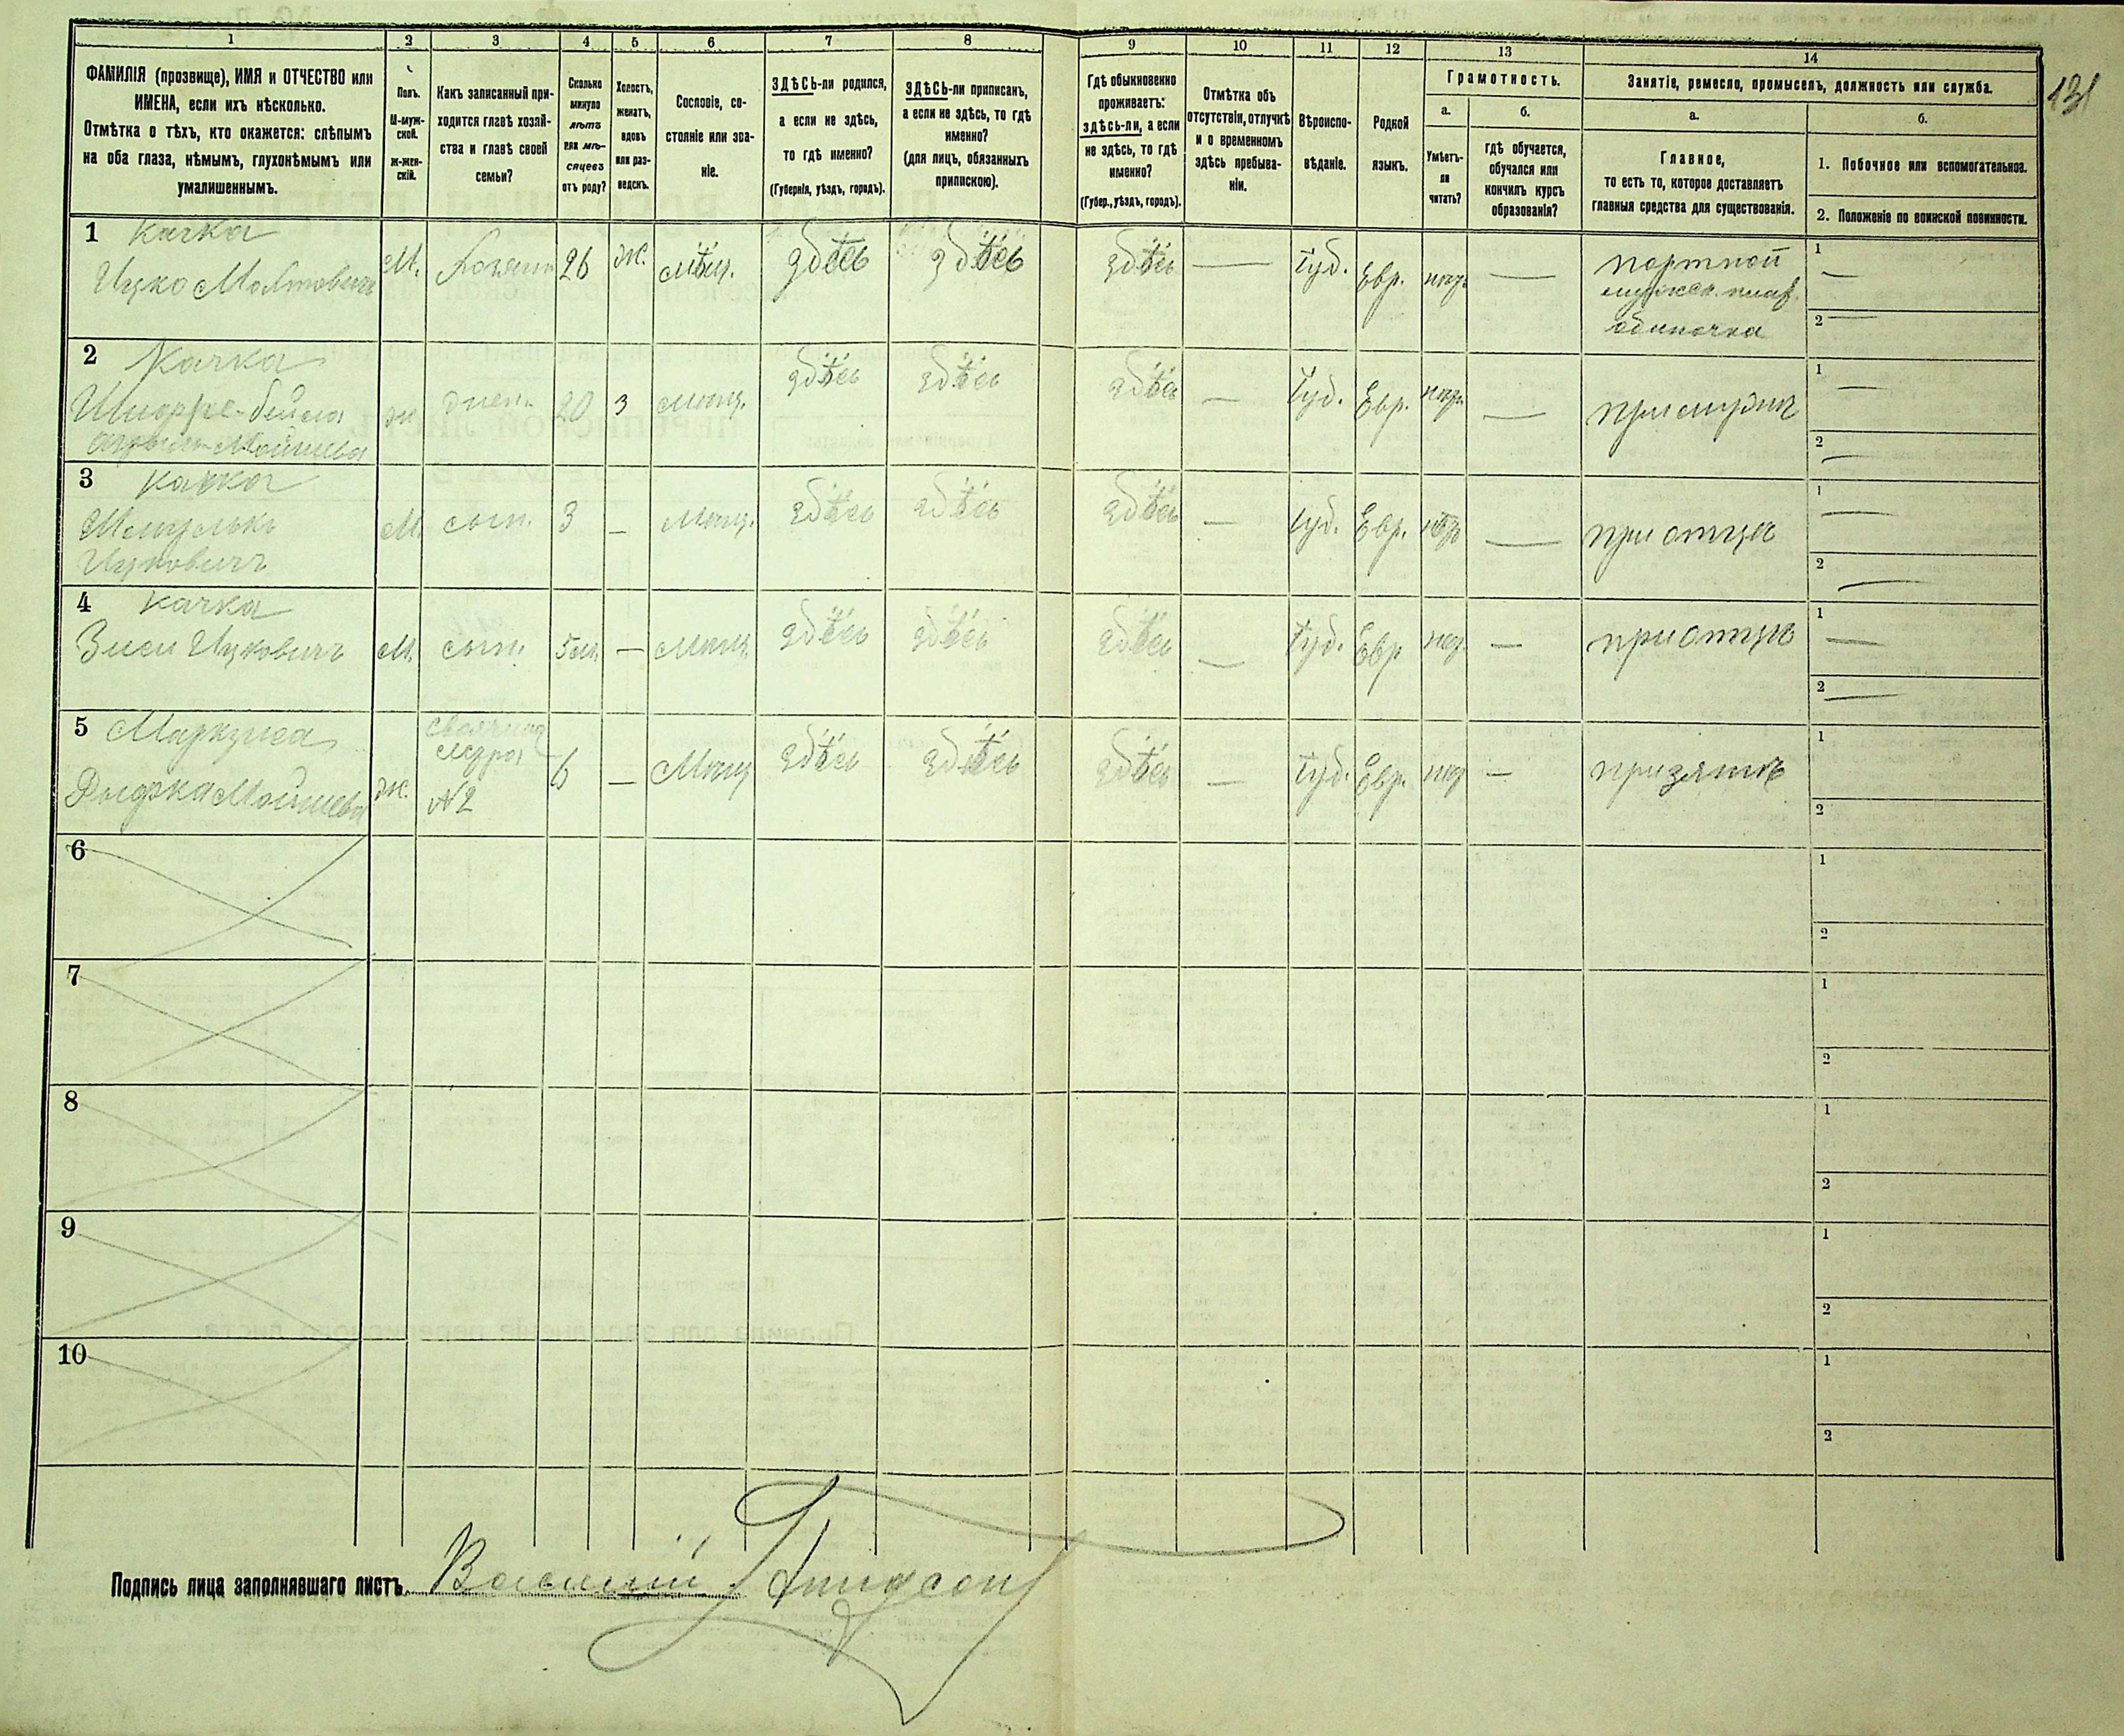 131
1 2 3 4 5 6 7 8 9 10 11 12 13 14
ФАМИЛІЯ (прозвище), ИМЯ и ОТЧЕСТВО или
ИМЕНА, если ихъ нѣсколько.
Отмѣтка о тѣхъ, кто окажется: слѣпымъ
на оба глаза, нѣмымъ, глухонѣмымъ или
умалишеннымъ.
Полъ.
М-муж-
ской.
ж-жен-
скій.
Какъ записанный при-
ходится главѣ хозяй-
ства и главѣ своей
семьи?
Сколько
минуло
лѣтъ
или мѣ-
сяцевъ
отъ роду?
Холостъ,
женатъ,
вдовъ
или раз-
веденъ.
Сословіе, со-
стояніе или зва-
ніе.
ЗДѢСЬ-ли родился,
а если не здѣсь,
то гдѣ именно?
(Губернія, уѣздъ, городъ).
ЗДѢСЬ-ли приписанъ,
а если не здѣсь, то гдѣ
именно?
(для лицъ, обязанныхъ
припискою).
Гдѣ обыкновенно
проживаетъ:
здѣсь-ли, а если
не здѣсь, то гдѣ
именно?
(Губер., уѣздъ, городъ).
Отмѣтка объ
отсутствіи, отлучкѣ
и о временномъ
здѣсь пребыва-
ніи.
Вѣроиспо-
вѣданіе.
Родной
языкъ.
Грамотность.
а.
Умѣетъ-
ли
читать?
б.
гдѣ обучается,
обучался или
кончилъ курсъ
образованія?
Занятіе, ремесло, промыселъ, должность или служба.
а.
Главное,
то есть то, которое доставляетъ
главныя средства для существованія.
б.
1. Побочное или вспомогательное.
2. Положеніе по воинской повинности.
1 Качка
Ицко М. хозяинъ 26 ж. мѣщ. здѣсь здѣсь здѣсь — Іуд. Евр. — портной
одиночка
1 —
2 —
2 Качка
ж жена 20 з мѣщ. здѣсь здѣсь здѣсь — Іуд. Евр. — при мужѣ
1 —
2 —
3 Качка
Ицковичъ
М. сынъ 3 — Мѣщ. здѣсь здѣсь здѣсь — Іуд. Евр. — при отцѣ
1 —
2 —
4 Качка
Ицковичъ М. сынъ 5 м. — Мѣщ. здѣсь здѣсь здѣсь — Іуд. Евр — при отцѣ
1 —
2 —
5 Маркуса
Мойшева ж. свояченица
сестра
№ 2
6 — Мѣщ здѣсь здѣсь здѣсь — Іуд. Евр. — при зятѣ
1
2
6 1
2
7 1
2
8 1
2
9 1
2
10 1
2
Подпись лица заполнявшаго листъ Василій